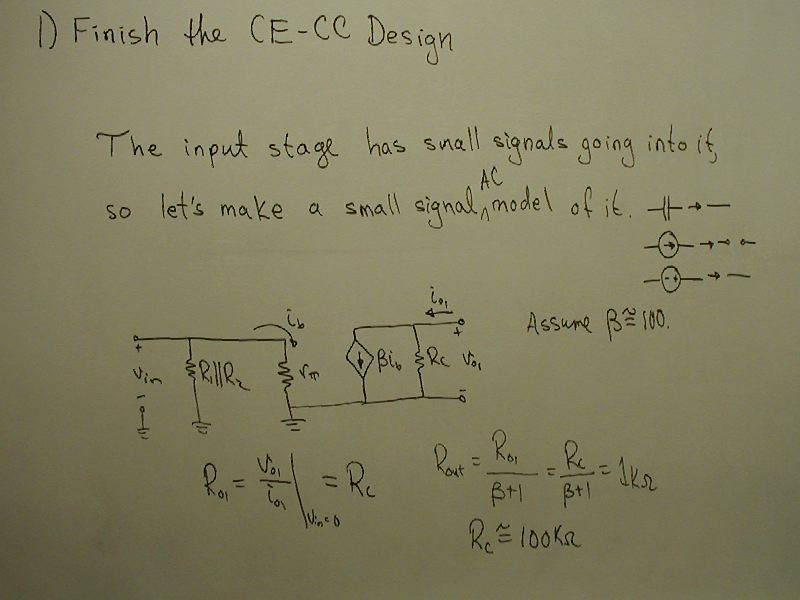 1) Finish the CE-CC Design
The input stage has small signals going into it,
so let's make a small signal AC model of it.
Assume β≅100.
i_o1
i_b
+ v_in -
R1||R2
rπ
βi_b
Rc
+ v_o1 -
R_o1 = v_o1/i_o1 |v_in=0 = Rc
R_out = R_o1/(β+1) = Rc/(β+1) = 1KΩ
Rc ≅ 100KΩ